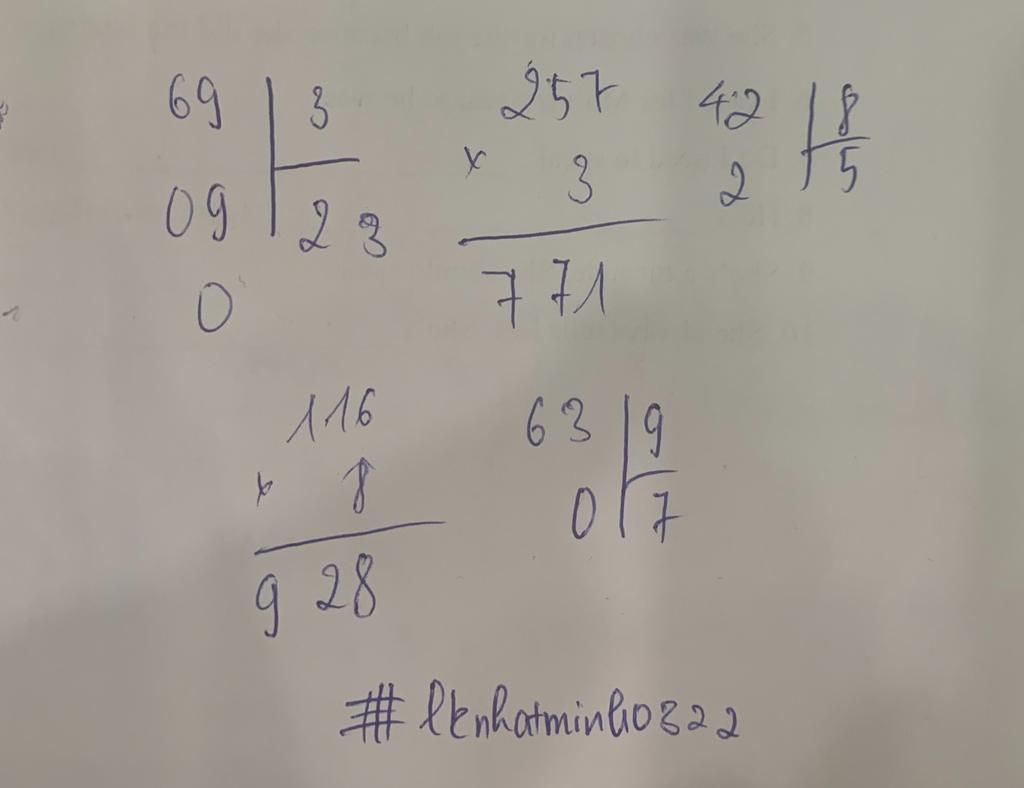 69 3 257 42 8
09 23 x 3 2 5
0 771
116 63 9
x 8 0 7
928
#lknhatminh0322